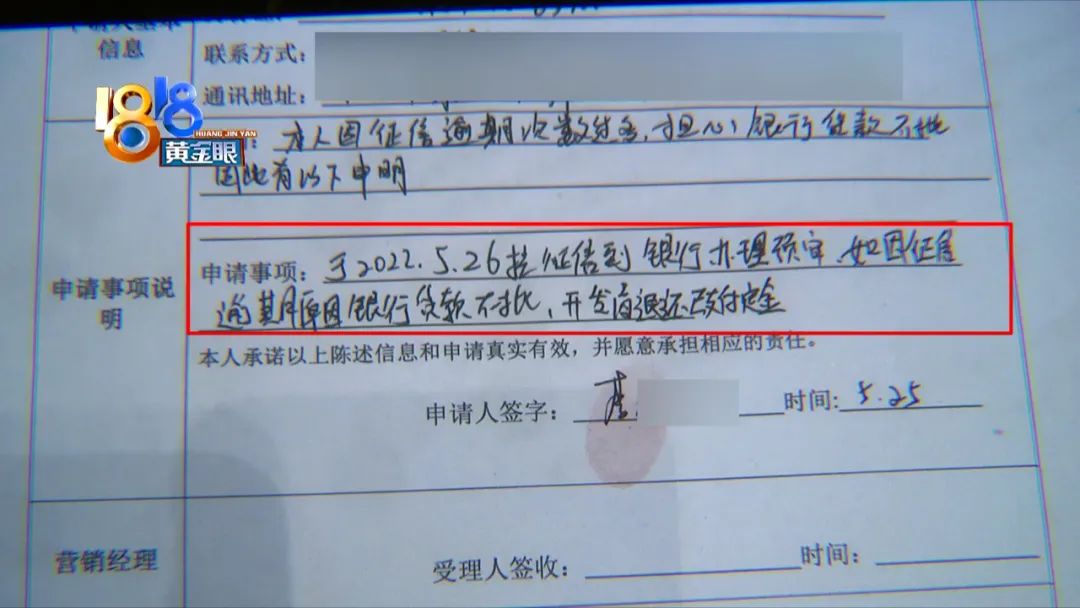 申请人基本
信息
联系方式：
通讯地址：
1818
HUANG JIN YAN
黄金眼
：本人因征信逾期次数过多，担心银行贷款不批
因此有以下申明
申请事项说
明
申请事项：于2022.5.26提征信到银行办理预审，如因征信
逾期原因银行贷款不批，开发商退还已支付定金
本人承诺以上陈述信息和申请真实有效，并愿意承担相应的责任。
申请人签字：
时间：5.25
营销经理
受理人签收：
时间：